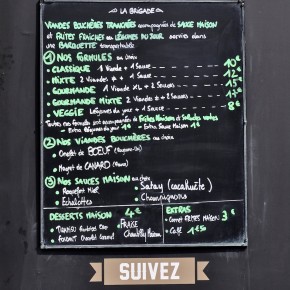 LA BRIGADE
VIANDES BOUCHÈRES TRANCHÉES accompagnées de SAUCE MAISON
et FRITES FRAÎCHES ou LÉGUMES DU JOUR servies dans
une BARQUETTE transportable
① NOS FORMULES au choix
• CLASSIQUE 1 Viande + 1 Sauce 10€
• MIXTE 2 Viandes + 1 Sauce 12€
• GOURMANDE 1 Viande XL + 2 Sauces 15€
• GOURMANDE MIXTE 2 Viandes + 2 Sauces
• VEGGIE Légumes du jour + 1 Sauce 8€
Toutes ces formules sont accompagnées de Frites Maison et Salades vertes
- Extra Légumes du jour 1€ - Extra Sauce Maison 1€
② NOS VIANDES BOUCHÈRES au choix
• Onglet de BOEUF
• Magret de CANARD
③ NOS SAUCES MAISON au choix
• Roquefort Miel
• Echalottes
• Satay (cacahuète)
• Champignons
DESSERTS MAISON 4€
• TIRAMISU
• FONDANT Chocolat
• FRAISE
Chantilly Maison
EXTRAS
• Cornet FRITES MAISON 3€
• CAFÉ 1€50
SUIVEZ